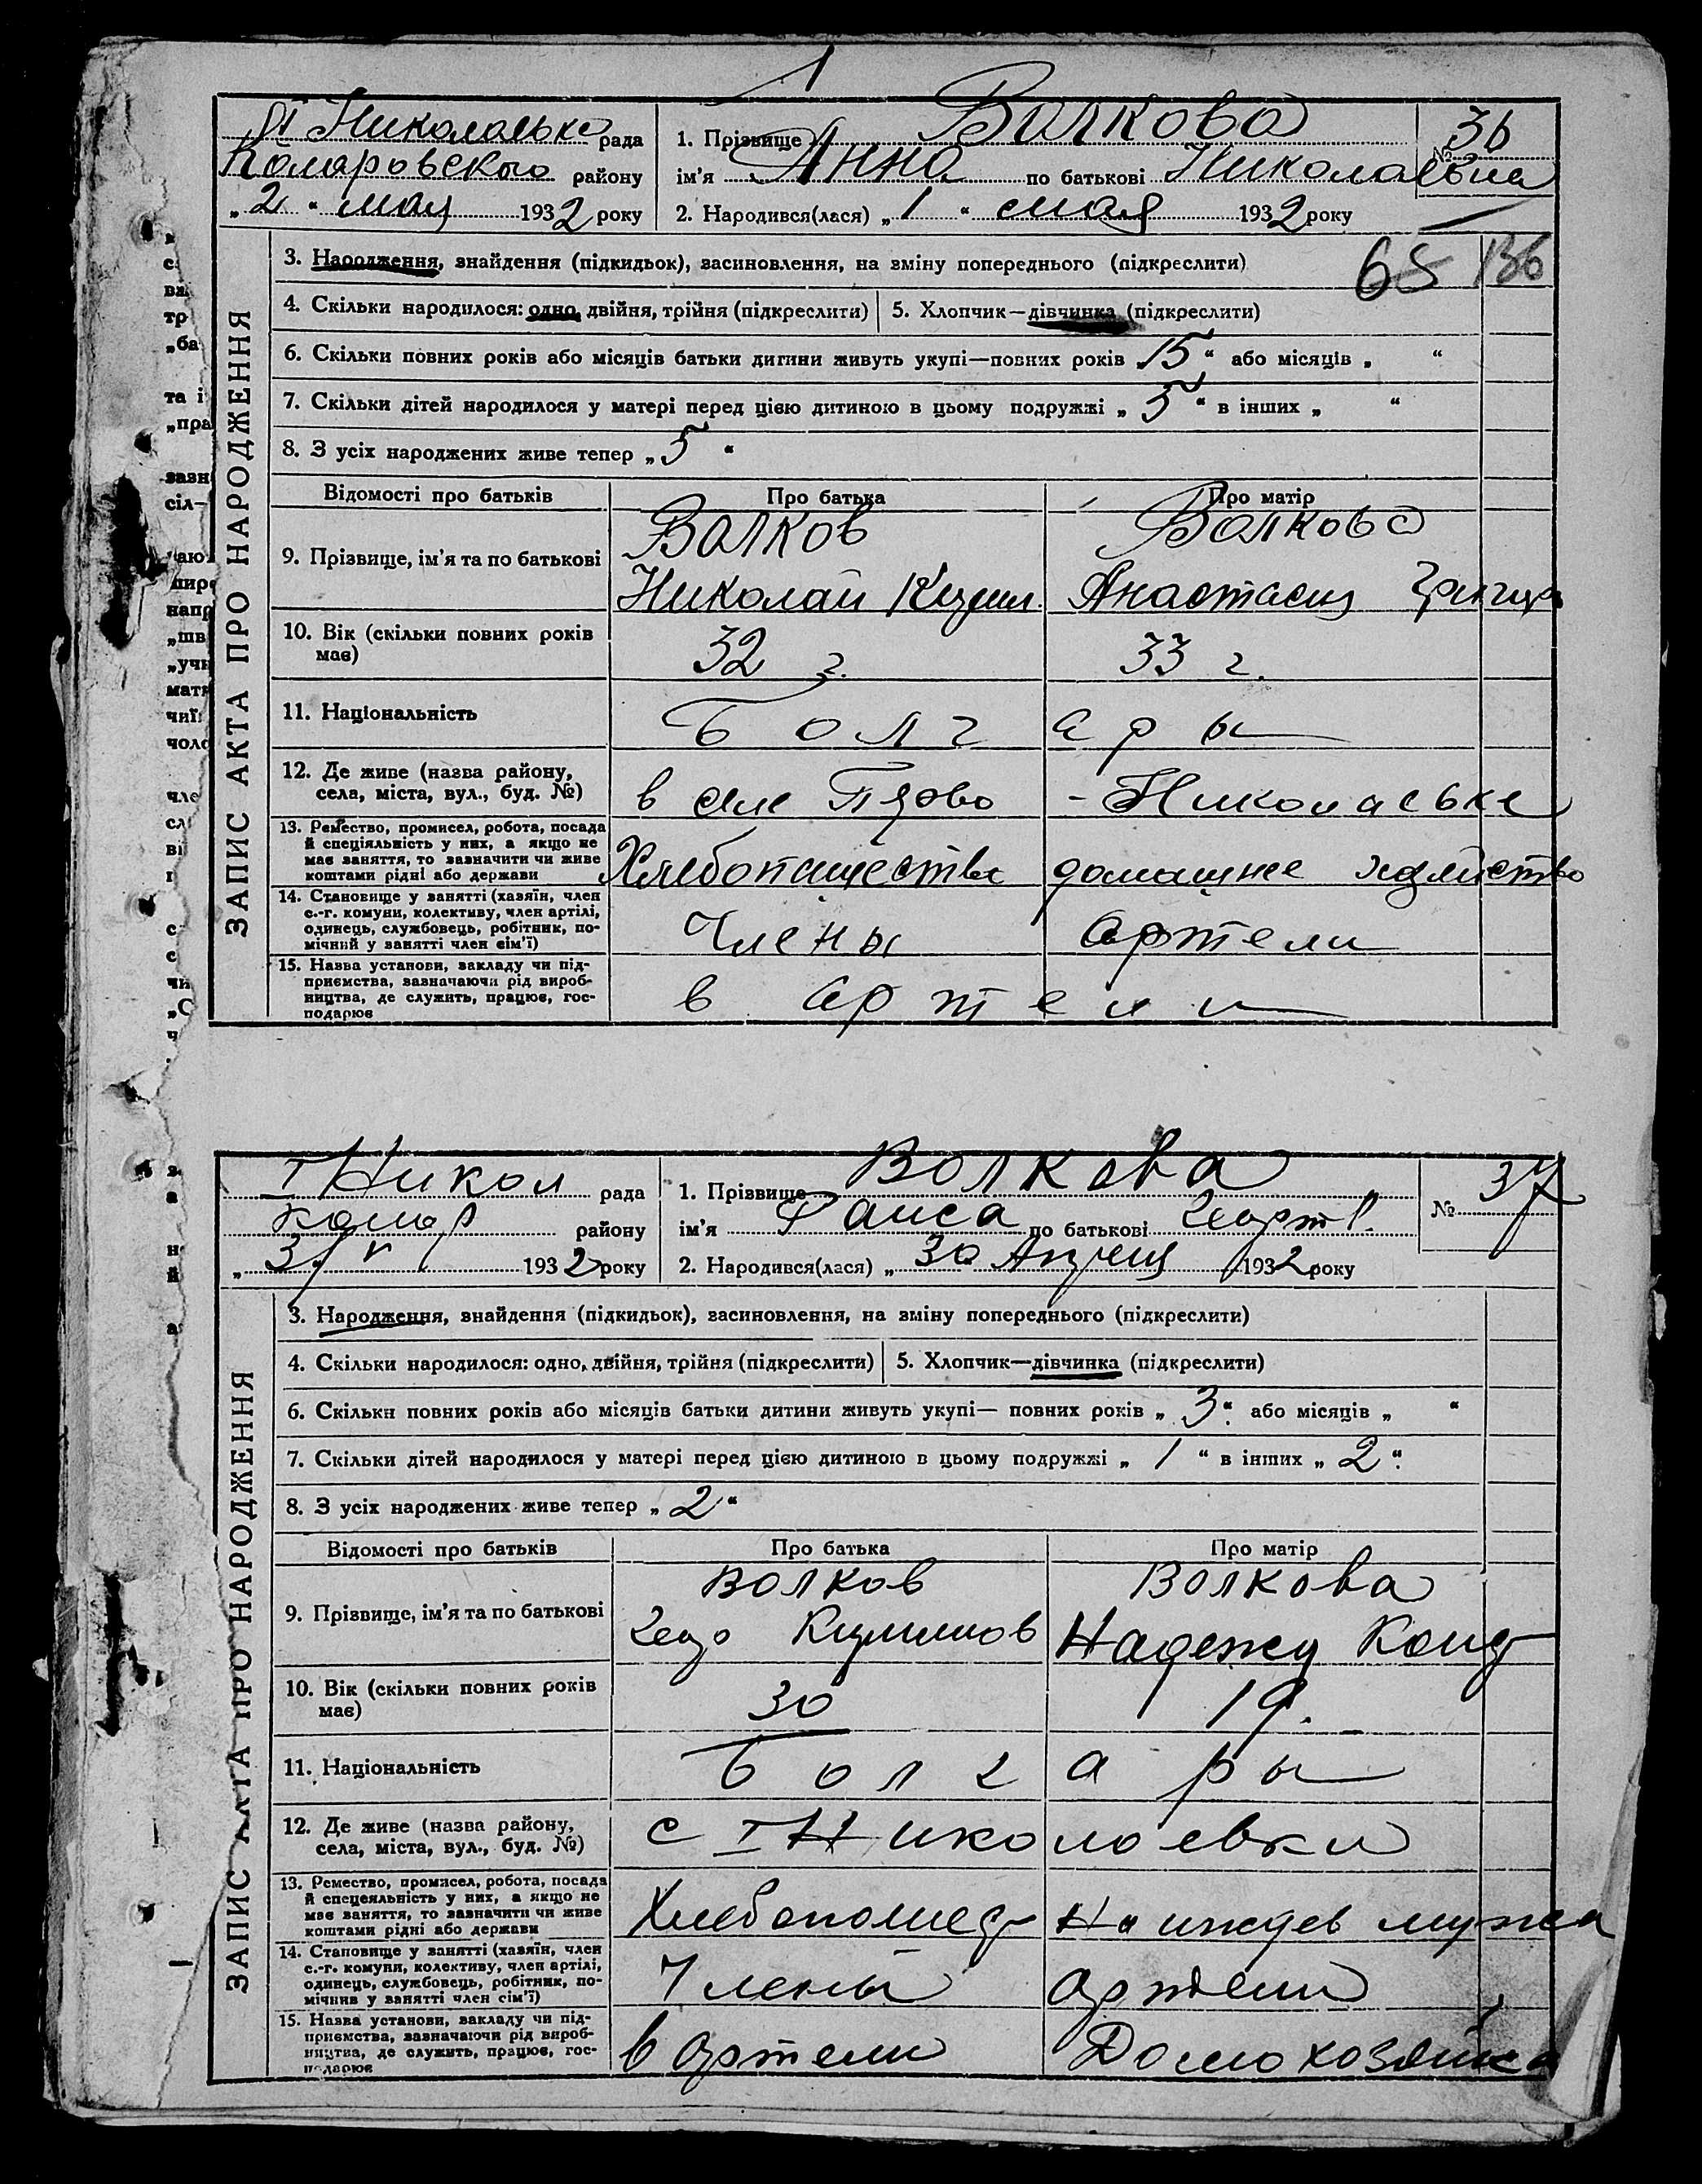 1
Николаевка рада
Комаровского району
„ 2 “ мая 1932 року
1. Прізвище Волкова
ім'я Анна по батькові Николаевна
2. Народився(лася) „ 1 “ мая 1932 року
№ 36
65 136
ЗАПИС АКТА ПРО НАРОДЖЕННЯ
3. Народження, знайдення (підкидьок), засиновлення, на зміну попереднього (підкреслити)
4. Скільки народилося: одно, двійня, трійня (підкреслити) 5. Хлопчик—дівчинка (підкреслити)
6. Скільки повних років або місяців батьки дитини живуть укупі—повних років „ 15 “ або місяців „ “
7. Скільки дітей народилося у матері перед цією дитиною в цьому подружжі „ 5 “ в інших „ “
8. З усіх народжених живе тепер „ 5 “
Відомості про батьків Про батька Про матір
9. Прізвище, ім'я та по батькові
Волков Волкова
Николай Анастасия
10. Вік (скільки повних років має)
32 г. 33 г.
11. Національність
Болгары
12. Де живе (назва району, села, міста, вул., буд. №)
в селе Перво - Николаевке
13. Ремество, промисел, робота, посада
й спеціяльність у них, а якщо не
має заняття, то зазначити чи живе
коштами рідні або держави
домашнее хозяйство
14. Становище у занятті (хазяїн, член
с.-г. комуни, колективу, член артілі,
одинець, службовець, робітник, по-
мічний у занятті член сім'ї)
Члены артели
15. Назва установи, закладу чи під-
приємства, зазначаючи рід вироб-
ництва, де служить, працює, гос-
подарює
в артели
I Никол рада
Комар району
„ 193 2 року
1. Прізвище Волкова
ім'я Раиса по батькові
2. Народився(лася) „ 30 Апреля 1932 року
№ 37
ЗАПИС АКТА ПРО НАРОДЖЕННЯ
3. Народження, знайдення (підкидьок), засиновлення, на зміну попереднього (підкреслити)
4. Скільки народилося: одно, двійня, трійня (підкреслити) 5. Хлопчик—дівчинка (підкреслити)
6. Скільки повних років або місяців батьки дитини живуть укупі— повних років „ 3 “ або місяців „ “
7. Скільки дітей народилося у матері перед цією дитиною в цьому подружжі „ 1 “ в інших „ 2 “
8. З усіх народжених живе тепер „ 2 “
Відомості про батьків Про батька Про матір
9. Прізвище, ім'я та по батькові
Волков Волкова
Надежда Конд
10. Вік (скільки повних років має)
30 19.
11. Національність
Болгары
12. Де живе (назва району, села, міста, вул., буд. №)
с I Николаевки
13. Ремество, промисел, робота, посада
й спецеяльність у них, а якщо не
має заняття, то зазначити чи живе
коштами рідні або держави
На иждев мужа
14. Становище у занятті (хазяїн, член
с.-г. комуни, колективу, член артілі,
одинець, службовець, робітник, по-
мічнив у занятті член сім'ї)
Члены артели
15. Назва установи, закладу чи під-
приємства, зазначаючи рід вироб-
ництва, де служить, працює, гос-
подарює
в артели Домохозяйка